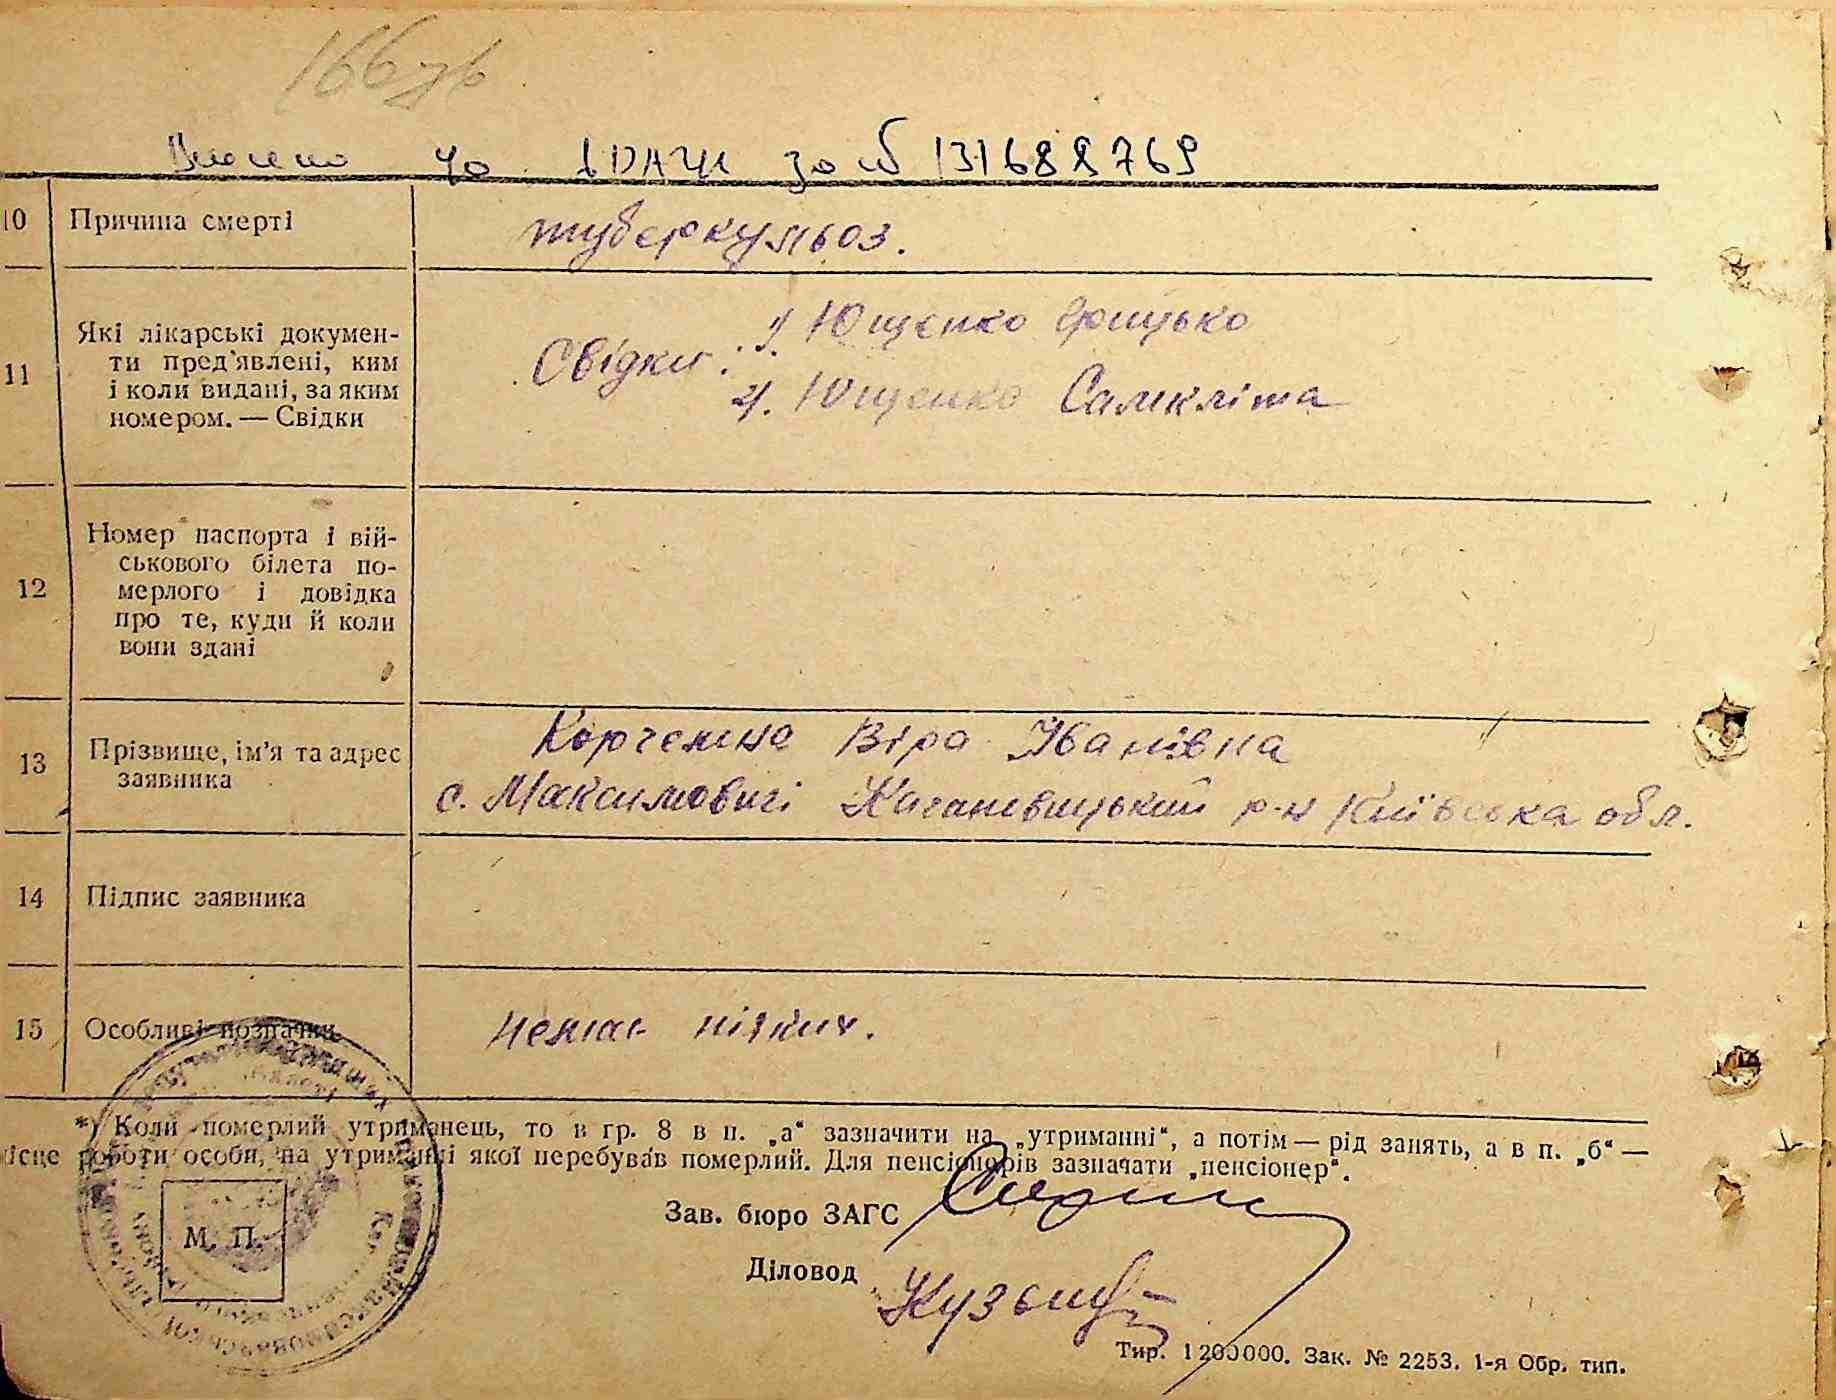 166зв
Внесено до ДРАЦС за № 131688769
10 Причина смерті
туберкульоз.
11 Які лікарські докумен-
ти пред'явлені, ким
і коли видані, за яким
номером. — Свідки
Свідки: 1/ Ющенко Грицько
2/. Ющенко Самкліта
12 Номер паспорта і вій-
ськового білета по-
мерлого і довідка
про те, куди й коли
вони здані
13 Прізвище, ім'я та адрес
заявника
Корчемна Віра Іванівна
с. Максимовичі Кагановицький р-н Київська обл.
14 Підпис заявника
15 Особливі позначки
Немає ніяких.
*) Коли померлий утриманець, то в гр. 8 в п. „а“ зазначити на „утриманні“, а потім — рід занять, а в п. „б“ —
місце роботи особи, на утриманні якої перебував померлий. Для пенсіонерів зазначати „пенсіонер“.
Зав. бюро ЗАГС
М. П.
Діловод
Тир. 1200000. Зак. № 2253. 1-я Обр. тип.